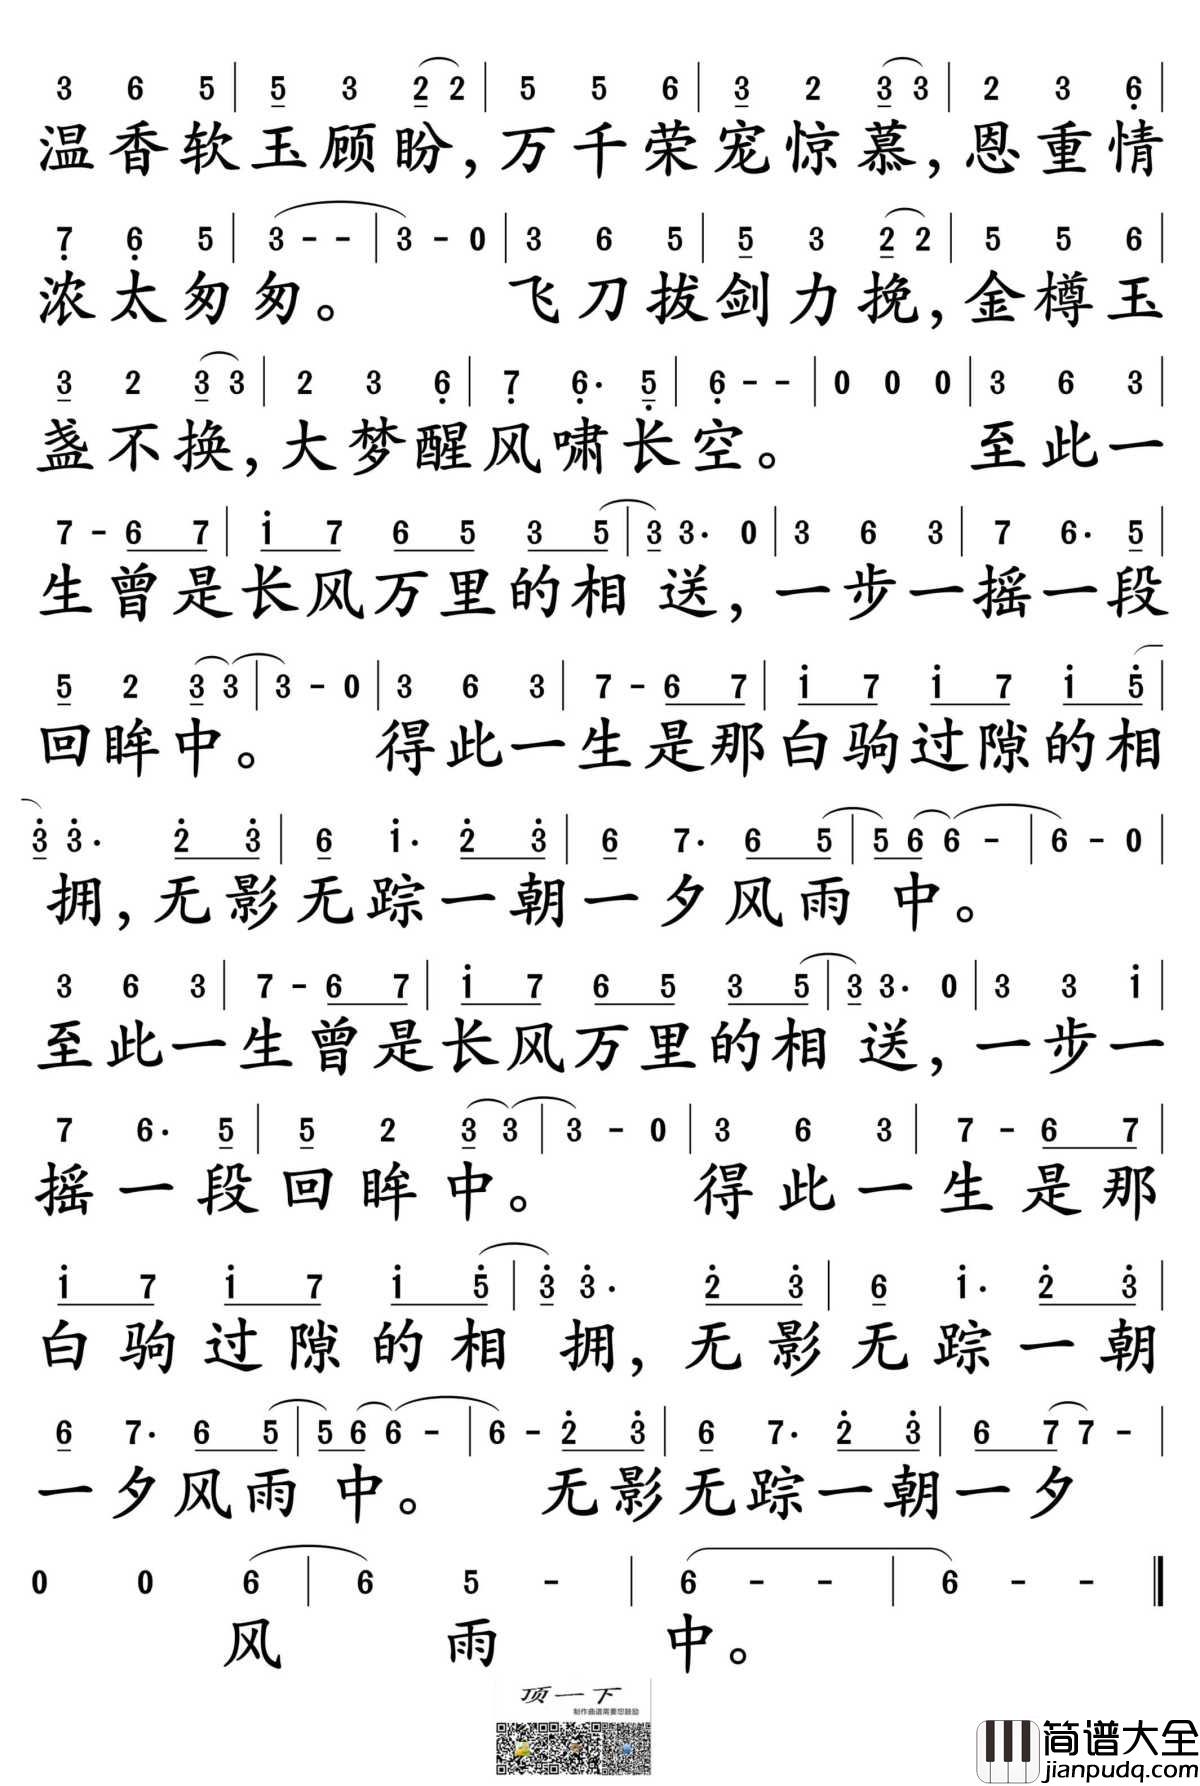 3 6 5 | 5 3 2 2 | 5 5 6 | 3 2 3 3 | 2 3 6 |
温香软玉顾盼,万千荣宠惊慕,恩重情
7 6 5 | 3 - - | 3 - 0 | 3 6 5 | 5 3 2 2 | 5 5 6 |
浓太匆匆。 飞刀拔剑力挽,金樽玉
3 2 3 3 | 2 3 6 | 7 6· 5 | 6 - - | 0 0 0 | 3 6 3 |
盏不换,大梦醒风啸长空。 至此一
7 - 6 7 | i 7 6 5 3 5 | 3 3· 0 | 3 6 3 | 7 6· 5 |
生曾是长风万里的相 送,一步一摇一段
5 2 3 3 | 3 - 0 | 3 6 3 | 7 - 6 7 | i 7 i 7 i 5 |
回眸中。 得此一生是那白驹过隙的相
3 3· 2 3 | 6 i· 2 3 | 6 7· 6 5 | 5 6 6 - | 6 - 0 |
拥,无影无踪一朝一夕风雨 中。
3 6 3 | 7 - 6 7 | i 7 6 5 3 5 | 3 3· 0 | 3 3 i |
至此一生曾是长风万里的相 送,一步一
7 6· 5 | 5 2 3 3 | 3 - 0 | 3 6 3 | 7 - 6 7 |
摇一段回眸中。 得此一生是那
i 7 i 7 i 5 | 3 3· 2 3 | 6 i· 2 3 |
白驹过隙的相 拥,无影无踪一朝
6 7· 6 5 | 5 6 6 - | 6 - 2 3 | 6 7· 2 3 | 6 7 7 - |
一夕风雨 中。 无影无踪一朝一夕
0 0 6 | 6 5 - | 6 - - | 6 - - ‖
风 雨 中。
顶一下
制作曲谱需要您鼓励
简谱大全
jianpudq.com